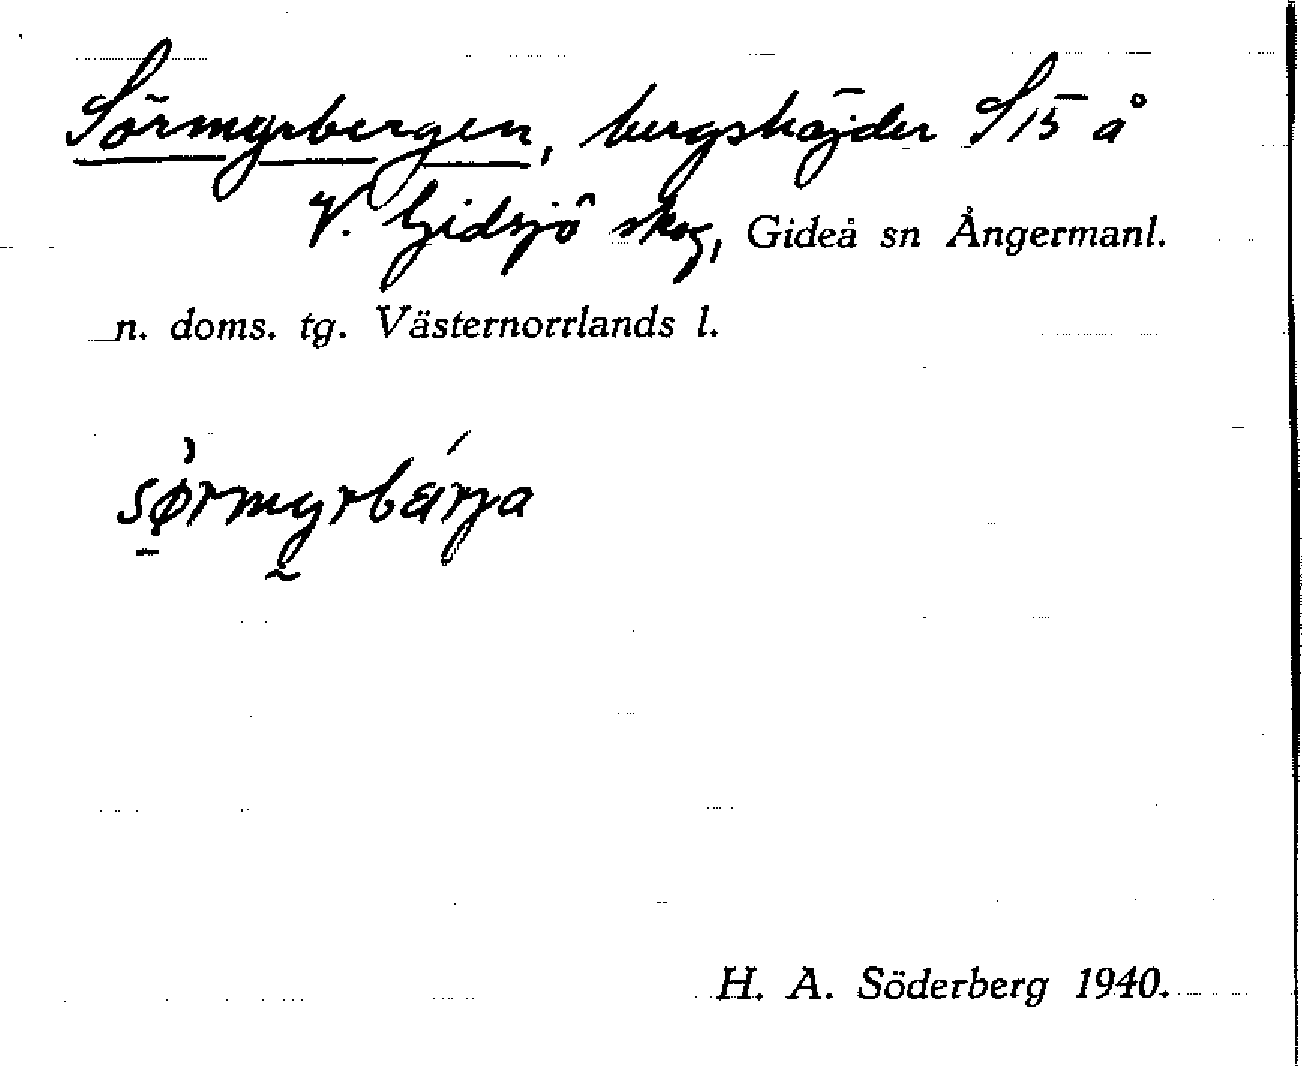 Sörmyrbergen, bergshöjder S 15 å
V. Gidsjö skog, Gideå sn Ångermanl.
n. doms. tg. Västernorrlands l.
sørmyrbärja
H. A. Söderberg 1940.